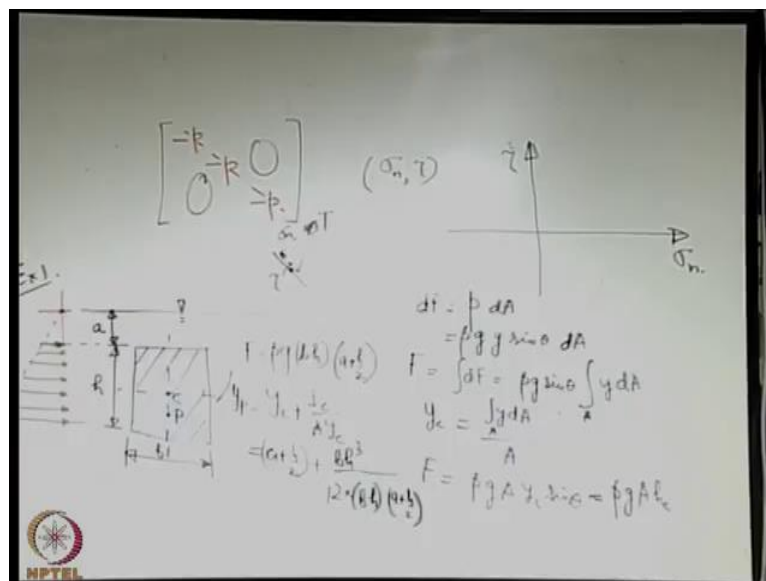 -p 0
-p
0 -p
(σn, τ)
τ
σn
τ
Ex 1.
a
h
c
P
b
F = ρg(bh)(a+h/2)
yp = yc + Ic/A yc
= (a+h/2) + bh³/12*(bh)(a+h/2)
dF = p dA
= ρg y sinθ dA
F = ∫dF = ρg sinθ ∫A y dA
yc = ∫A y dA / A
F = ρg A yc sinθ = ρg A hc
NPTEL